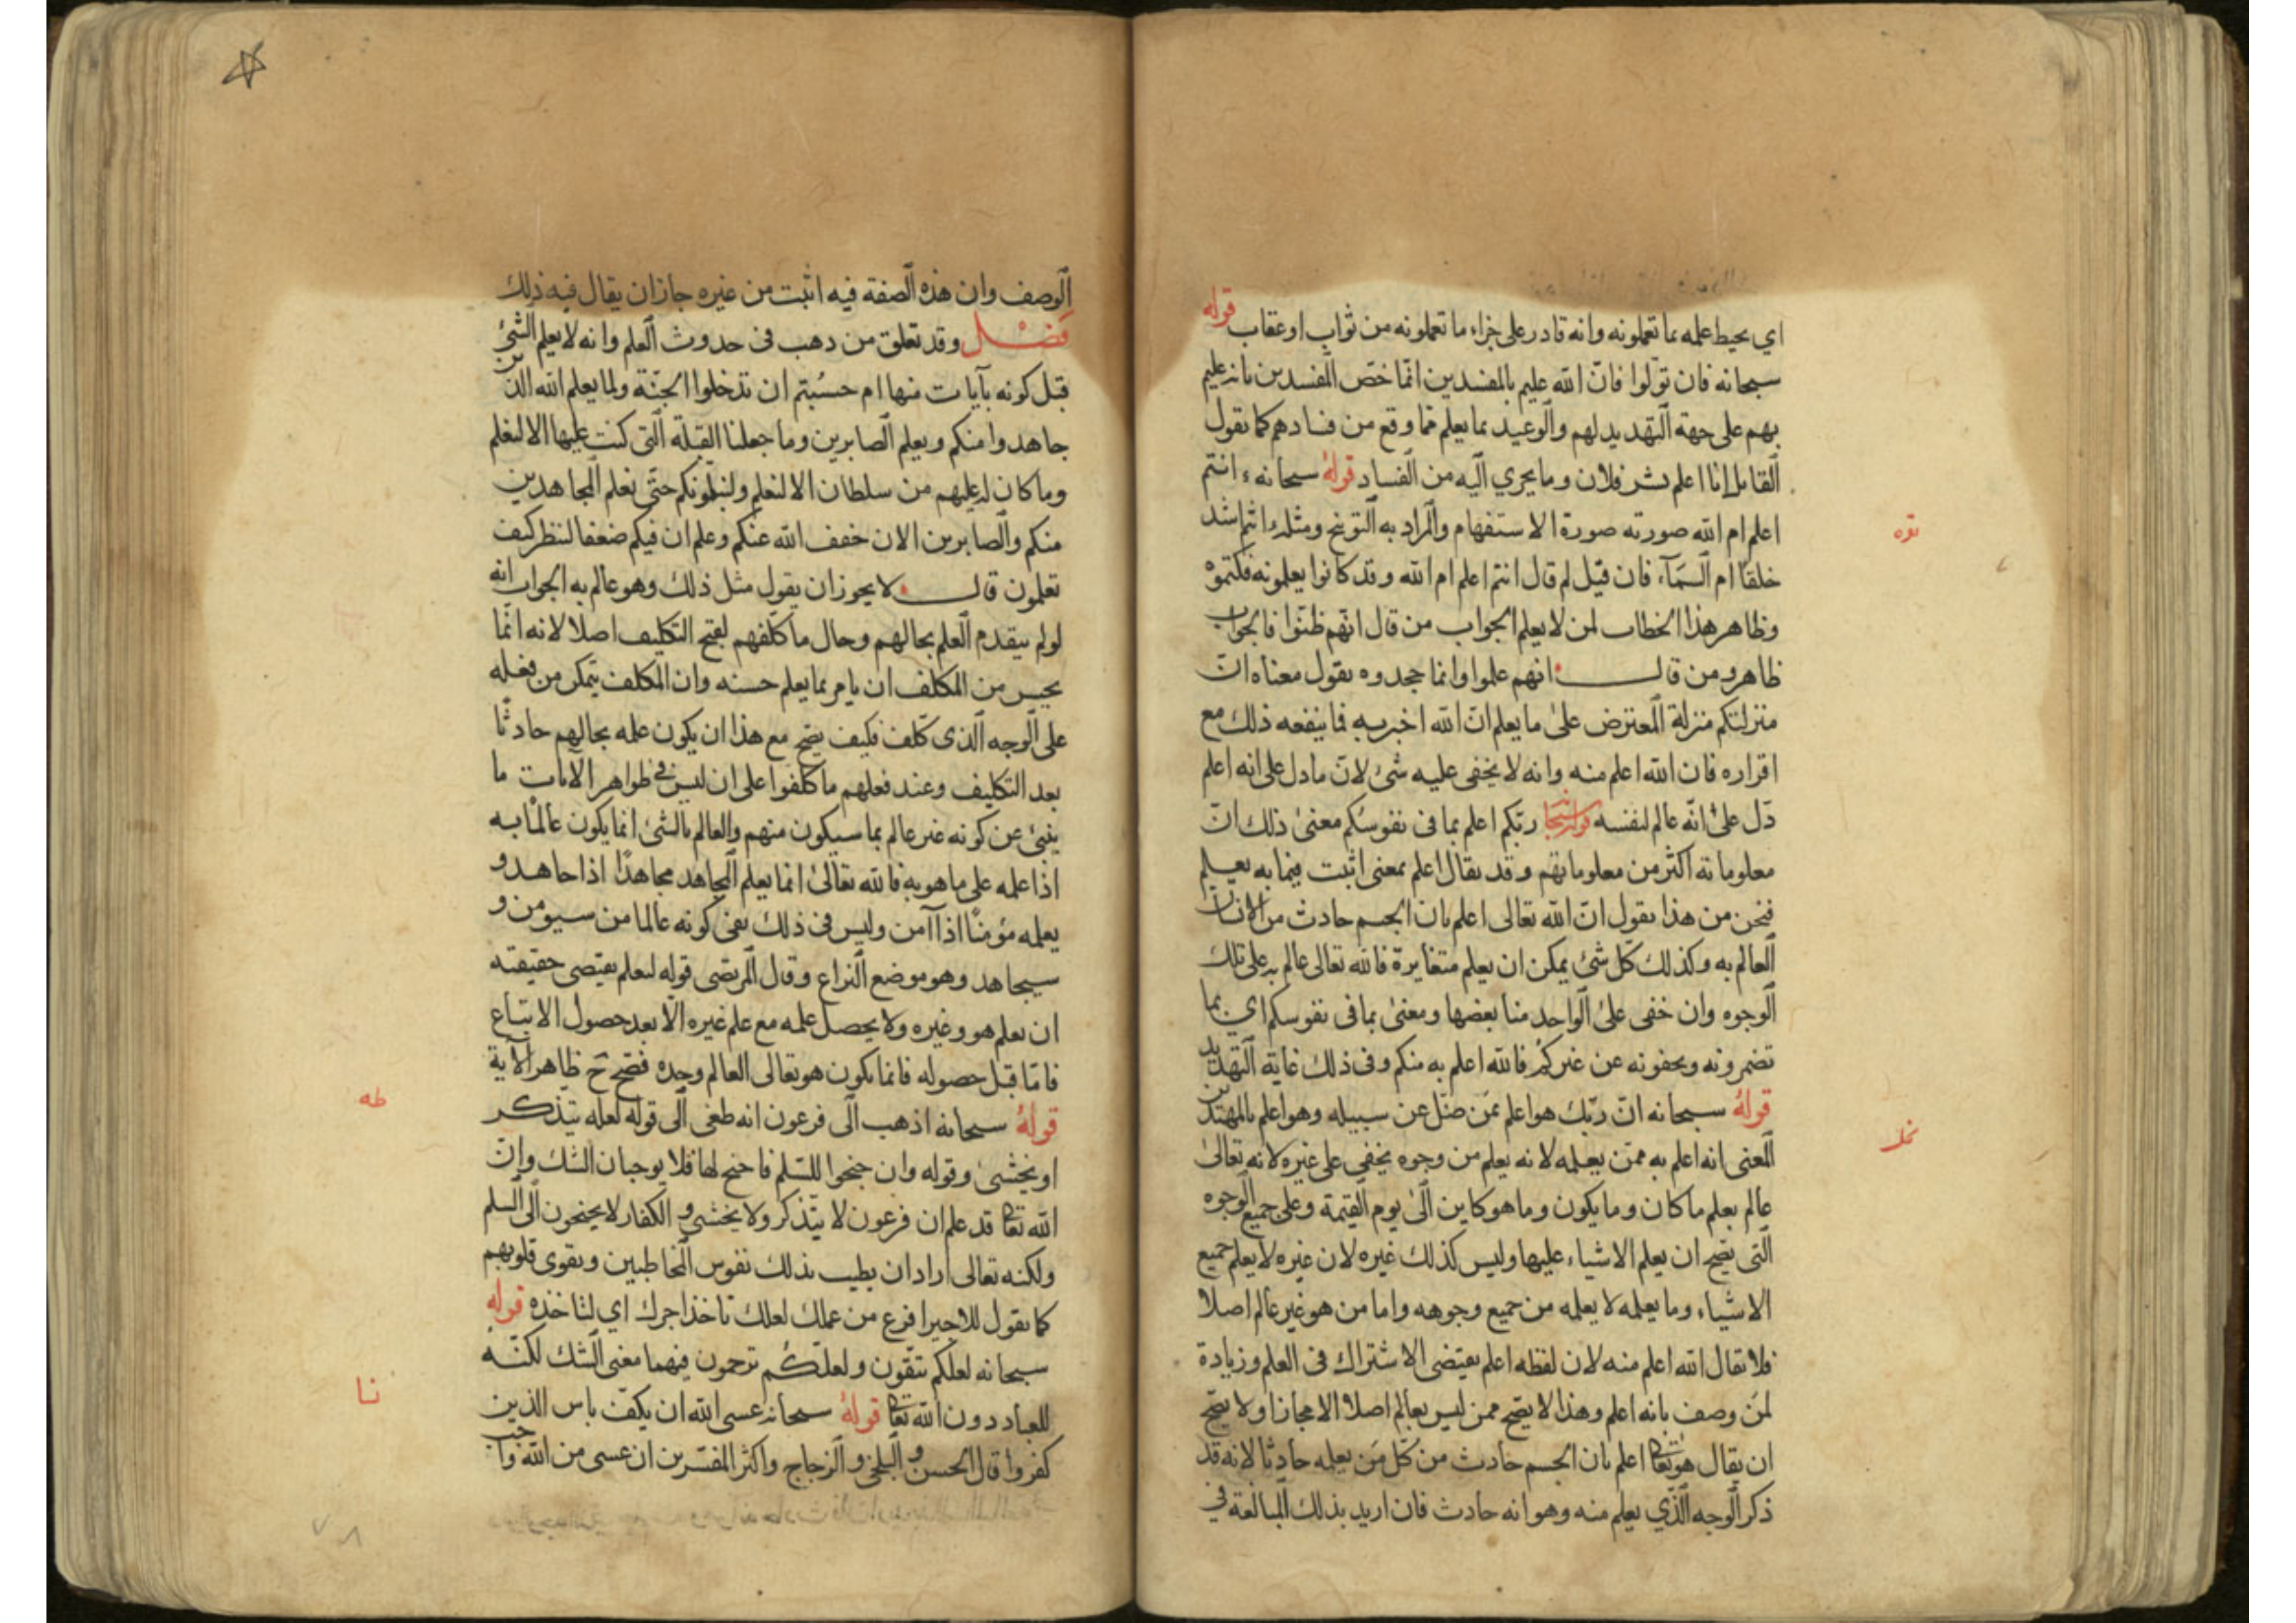 اي يحيط علمه بما تعملونه وانه قادر على جزاء ما تعملونه من ثواب او عقاب قوله
سبحانه فان تولوا فانّ الله عليم بالمفسدين انّما خصّ المفسدين بانه عليم
بهم على جهة التهديد لهم والوعيد بما يعلم مما وقع من فسادهم كما يقول
القايل انا اعلم بشر فلان وما يجري اليه من الفساد قوله سبحانه ءانتم
اعلم ام الله صورته صورة الاستفهام والمراد به التوبيخ ومثله ءانتم اشد
خلقا ام السمآء فان قيل لم قال انتم اعلم ام الله وقد كانوا يعلمونه فكتموه
وظاهر هذا الخطاب لمن لا يعلم الجواب من قال انهم ظنّوا فالجواب
ظاهر ومن قال انهم علموا وانما جحدوه يقول معناه انّ
منزلتكم منزلة المعترض على ما يعلم انّ الله اخبر به فما ينفعه ذلك مع
اقراره فان الله اعلم منه وانه لا يخفى عليه شئ لانّ ما دل على انه اعلم
دّل على انّه عالم لنفسه قوله سبحانه ربّكم اعلم بما فى نفوسكم معنى ذلك انّ
معلوماته اكثر من معلوماتهم وقد يقال اعلم بمعنى اثبت فيما به يعلم
فنحن من هذا نقول انّ الله تعالى اعلم بان الجسم حادث من الانسان
العالم به وكذلك كل شئ يمكن ان يعلم متغايرة فالله تعالى عالم به على تلك
الوجوه وان خفى على الواحد منا بعضها ومعنى بما فى نفوسكم اي بما
تضمرونه وتخفونه عن غيركم فالله اعلم به منكم وفى ذلك غاية التهديد
قوله سبحانه انّ ربّك هو اعلم بمن ضلّ عن سبيله وهو اعلم بالمهتدين
المعنى انه اعلم به ممّن يعلمه لانه يعلم من وجوه يخفى على غيره لانه تعالى
عالم يعلم ما كان وما يكون وما هو كاين الى يوم القيمة وعلى جميع الوجوه
التى يصح ان يعلم الاشياء عليها وليس كذلك غيره لان غيره لا يعلم جميع
الاشياء وما يعلمه لا يعلمه من جميع وجوهه واما من هو غير عالم اصلا
فلا يقال الله اعلم منه لان لفظه اعلم يقتضى الاشتراك فى العلم وزيادة
لمن وصف بانه اعلم وهذا لا يصح ممن ليس بعالم اصلا الا مجازا ولا يصّح
ان يقال هو تعالى اعلم بان الجسم حادث من كل من يعلمه حادثا لانه قد
ذكر الوجه الّذي يعلم منه وهو انه حادث فان اريد بذلك المبالغة في
بقره
نحل
الوصف وان هذه الصفة فيه اثبت من غيره جاز ان يقال فيه ذلك
فصل وقد تعلق من ذهب فى حدوث العلم وانه لا يعلم الشئ
قبل كونه بآيات منها ام حسبتم ان تدخلوا الجنّة ولما يعلم الله الذين
جاهدوا منكم ويعلم الصابرين وما جعلنا القبلة التى كنت عليها الا لنعلم
وما كان له عليهم من سلطان الا لنعلم ولنبلونكم حتّى نعلم المجاهدين
منكم والصابرين الان خفف الله عنكم وعلم ان فيكم ضعفا لننظر كيف
تعلمون قال لا يجوز ان يقول مثل ذلك وهو عالم به الجواب انه
لو لم يتقدم العلم بحالهم وحال ما كلفهم لقبح التكليف اصلا لانه انّما
يحسن من المكلف ان يامر بما يعلم حسنه وان المكلف يتمكن من فعله
على الوجه الّذى كلف فكيف يصح مع هذا ان يكون علمه بحالهم حادثا
بعد التكليف وعند فعلهم ما كلفوا على ان ليس في ظواهر الآيات ما
ينبئ عن كونه غير عالم بما سيكون منهم والعالم بالشئ انما يكون عالما به
اذا علمه على ما هو به فالله تعالى انما يعلم المجاهد مجاهدا اذا جاهد و
يعلمه مؤمنا اذا آمن وليس فى ذلك نفى كونه عالما من سيومن و
سيجاهد وهو موضع النزاع وقال المرتضى قوله لنعلم يقتضى حقيقته
ان يعلم هو وغيره ولا يحصل علمه مع علم غيره الّا بعد حصول الاتباع
فامّا قبل حصوله فانما يكون هو تعالى العالم وحده فصح ح ظاهر الآية
قوله سبحانه اذهب الى فرعون انه طغى الى قوله لعله يتذكر
او يخشى وقوله وان جنحوا للسّلم فاجنح لها فلا يوجبان الشك وانّ
الله تعالى قد علم ان فرعون لا يتذكر ولا يخشى و الكفار لا يجنحون الى السلم
ولكنه تعالى اراد ان يطيب بذلك نفوس المخاطبين ويقوى قلوبهم
كما يقول للاجير افرغ من عملك لعلك تاخذ اجرك اي لتاخذه قوله
سبحانه لعلكم تتّقون ولعلّكم ترحمون فيهما معنى الشك لكنّه
للعباد دون الله تعالى قوله سبحانه عسى الله ان يكفّ باس الذين
كفروا قال الحسن و البلخى و الزجاج واكثر المفسّرين ان عسى من الله واجب
طه
نسا
٧٨